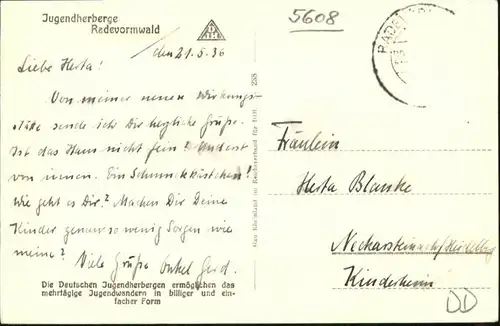 Jugendherberge
Radevormwald
den 21.5.36
Liebe Herta!
Von meiner neuen Wirkungs-
stätte sende ich Dir herzliche Grüße.
Ist das Haus nicht fein? Und erst
von innen. Ein Schmuckkästchen!
Wie geht es Dir? Machen Dir Deine
Kinder genau so wenig Sorgen wie
meine? Viele Grüße Onkel Gerd.
Die Deutschen Jugendherbergen ermöglichen das
mehrtägige Jugendwandern in billiger und ein-
facher Form
Gau Rheinland im Reichsverband für DJH. 238
5608
Fräulein
Herta Blanke
Neckarsteinach/Heidelberg
Kinderheim
DD